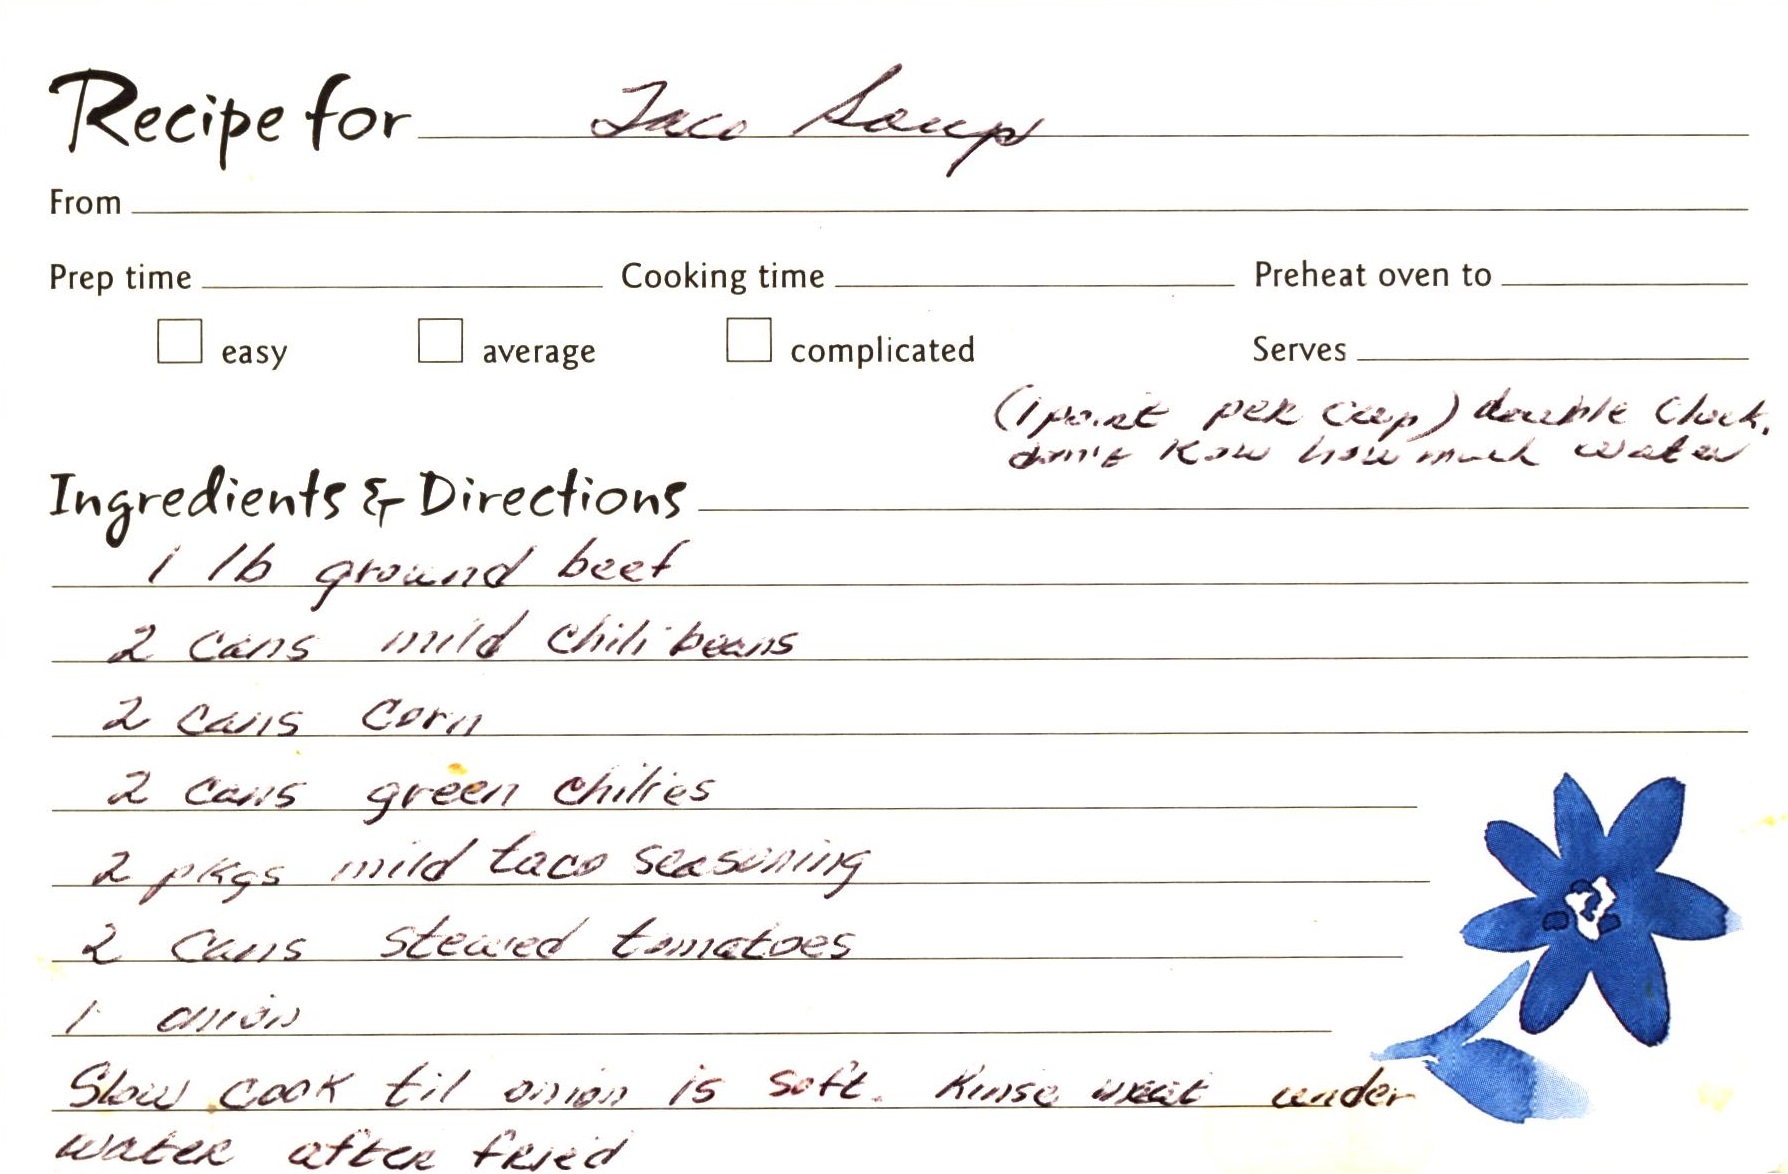 Recipe for Taco Soup
From
Prep time Cooking time Preheat oven to
easy average complicated Serves
(1 point per cup) double Check.
don't Kow how much water
Ingredients & Directions
1 lb ground beef
2 cans mild chili beans
2 cans corn
2 cans green chilies
2 pkgs mild taco seasoning
2 cans stewed tomatoes
1 onion
Slow cook til onion is soft. Rinse meat under
water after fried